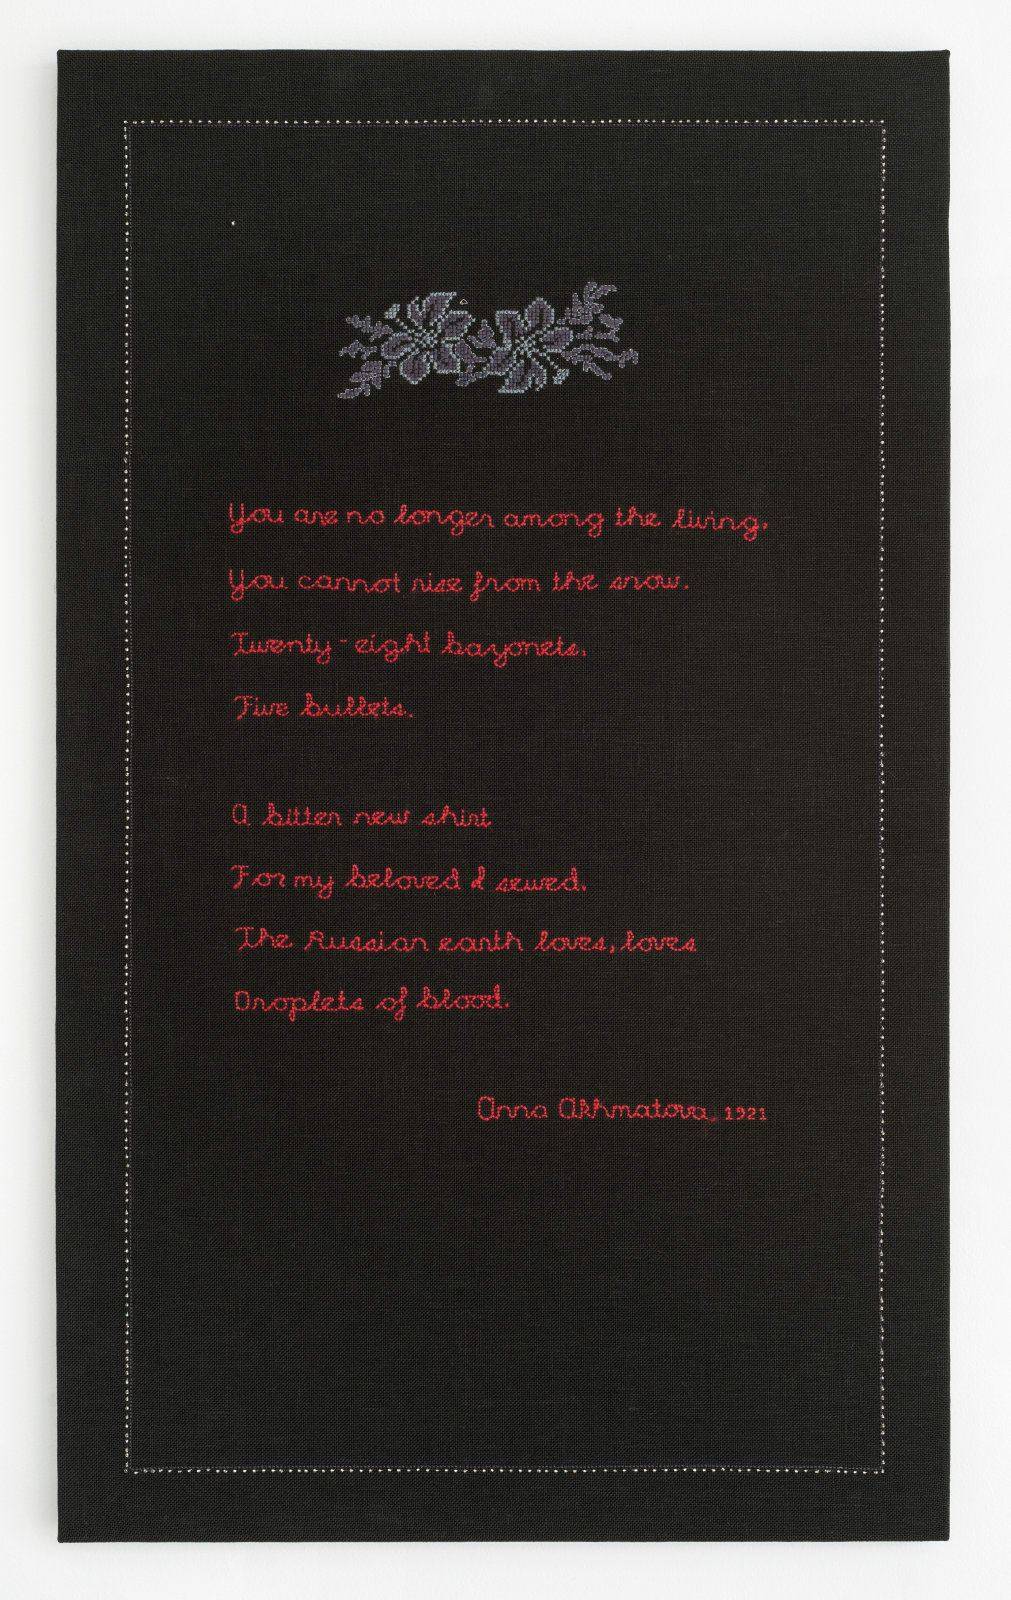 You are no longer among the living,
You cannot rise from the snow.
Twenty-eight bayonets,
Five bullets.
A bitter new shirt
For my beloved I sewed.
The Russian earth loves, loves
Droplets of blood.
Anna Akhmatova, 1921